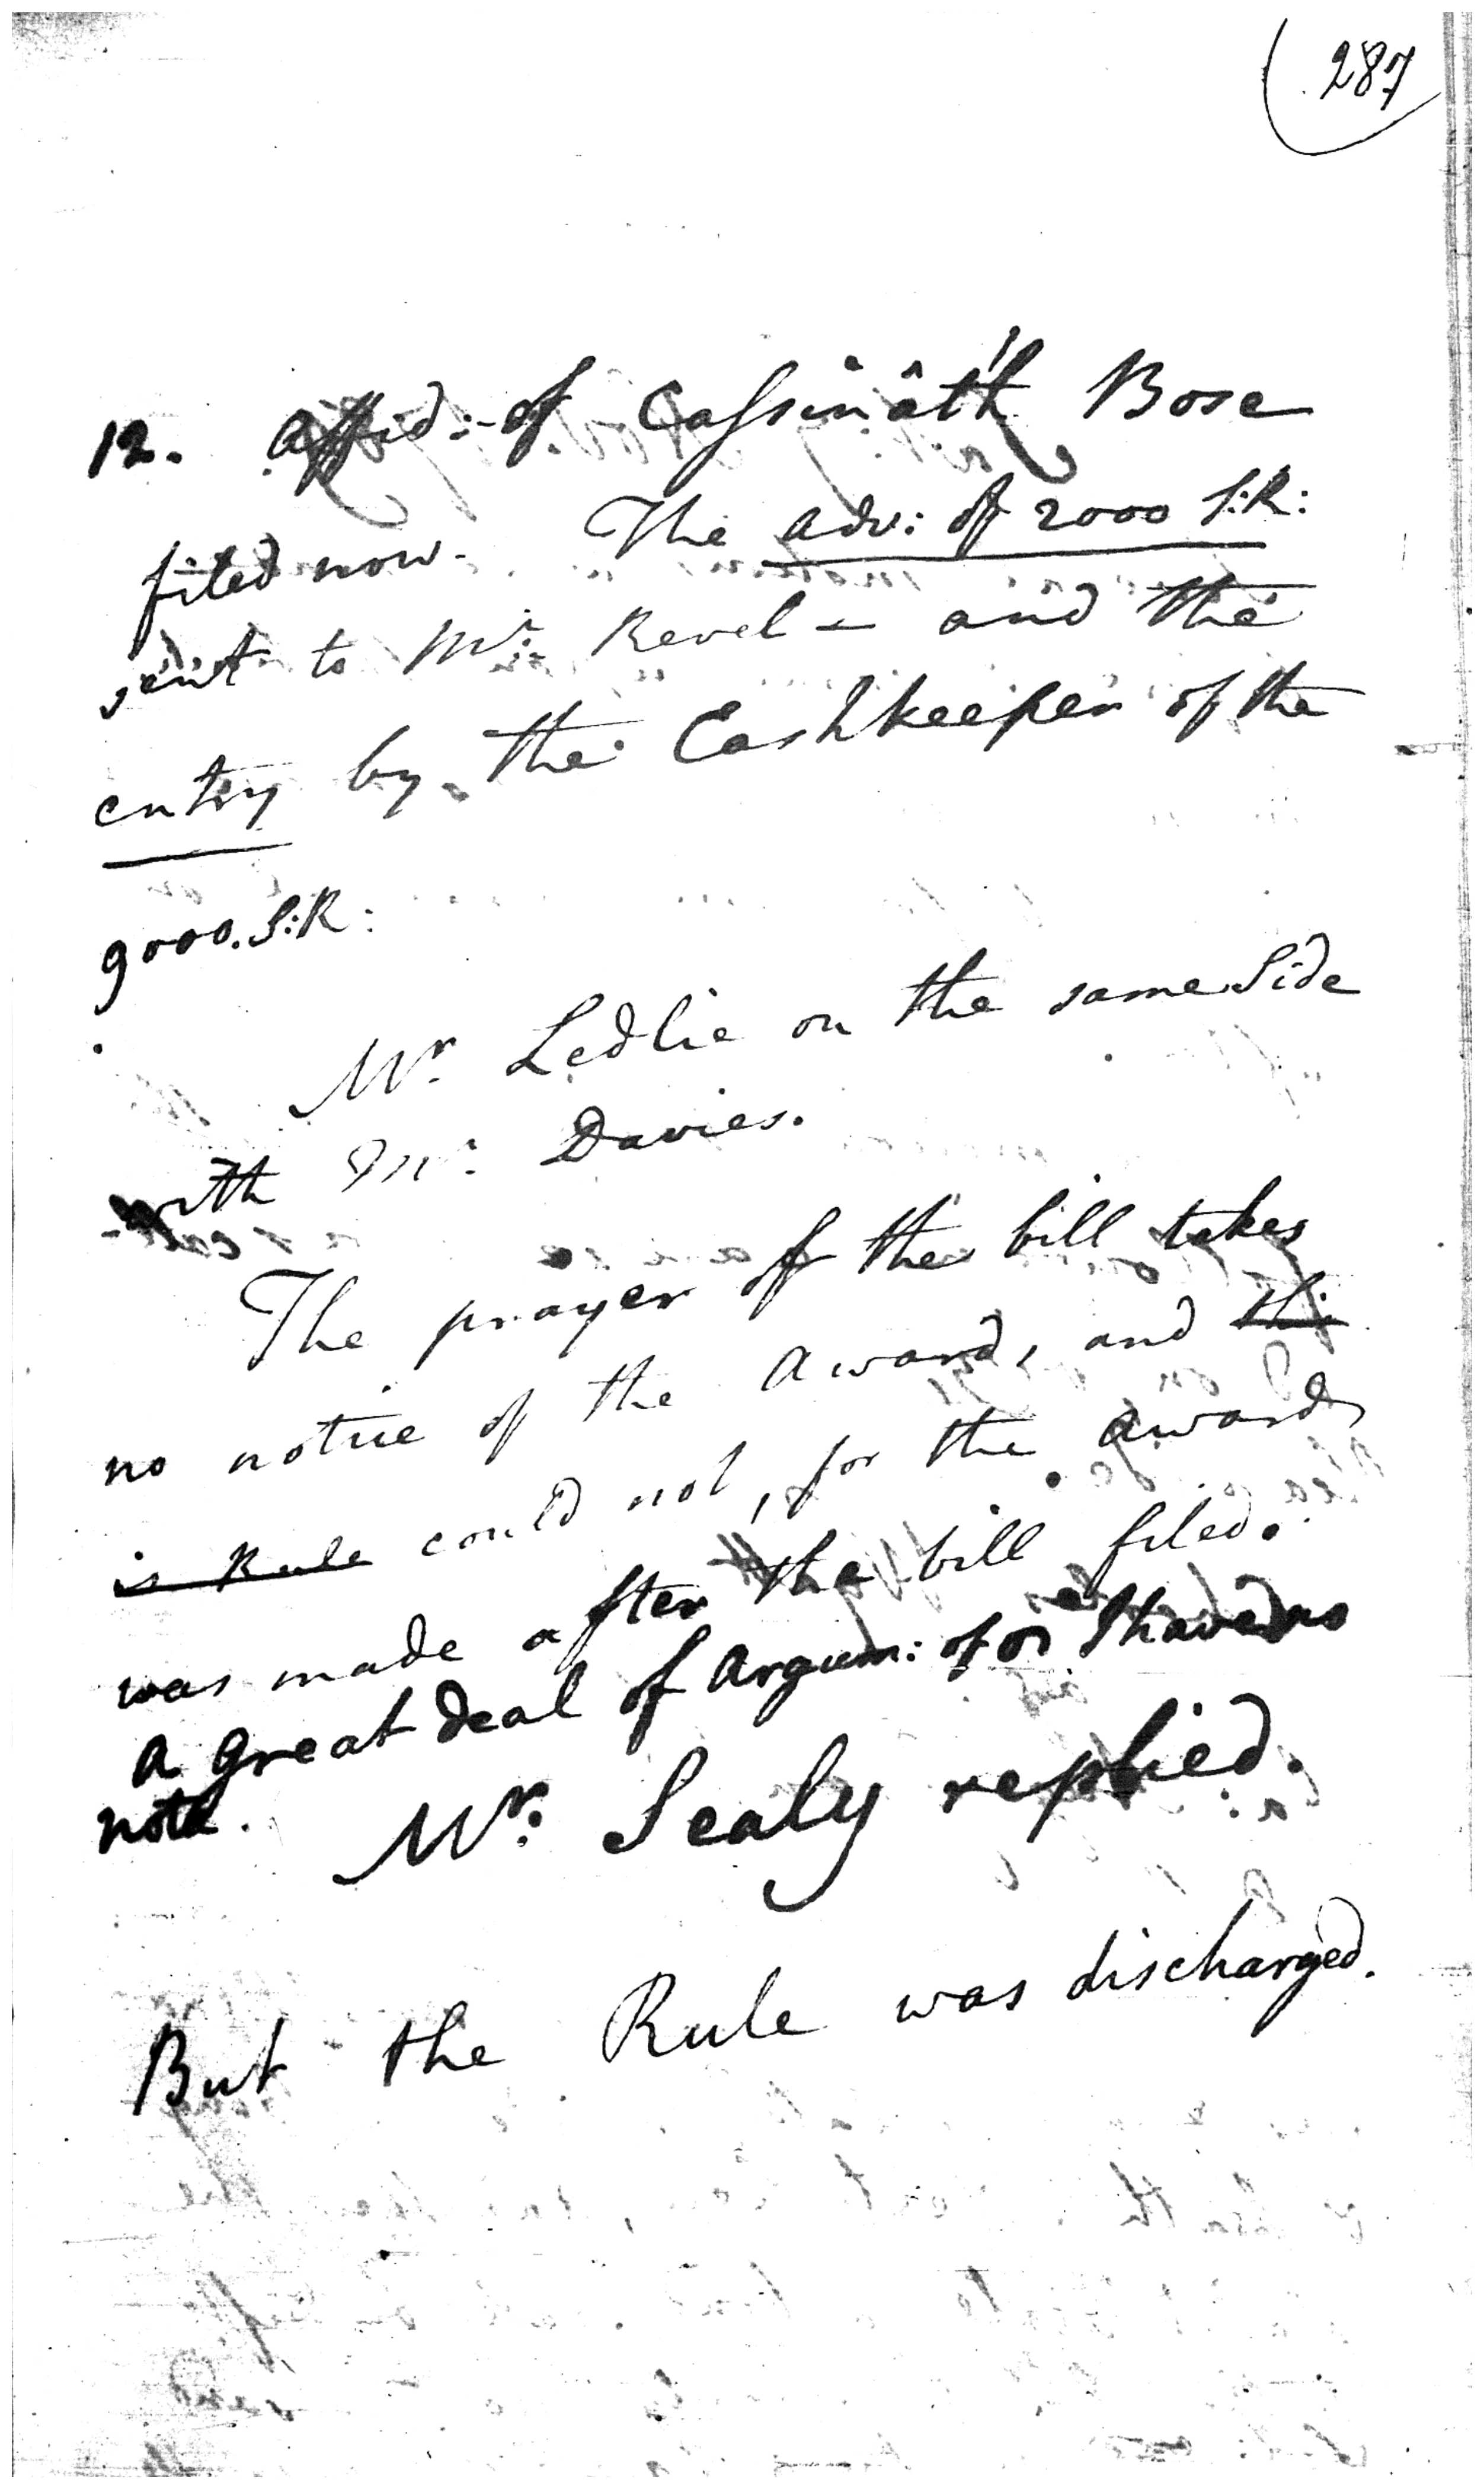 287
12. Affid: of Cassinâth Bose
filed now. The adv: of 2000 S:R:
sent to Mr. Revel - and the
entry by the Cashkeeper of the
9000. S:R:
Mr. Ledlie on the same Side
with Mr. Davies.
The prayer of the bill takes
no notice of the award, and thi
is Rule could not, for the award
was made after the bill filed.
A great deal of Argum: of I have no
note. Mr. Sealy replied.
But the Rule was discharged.